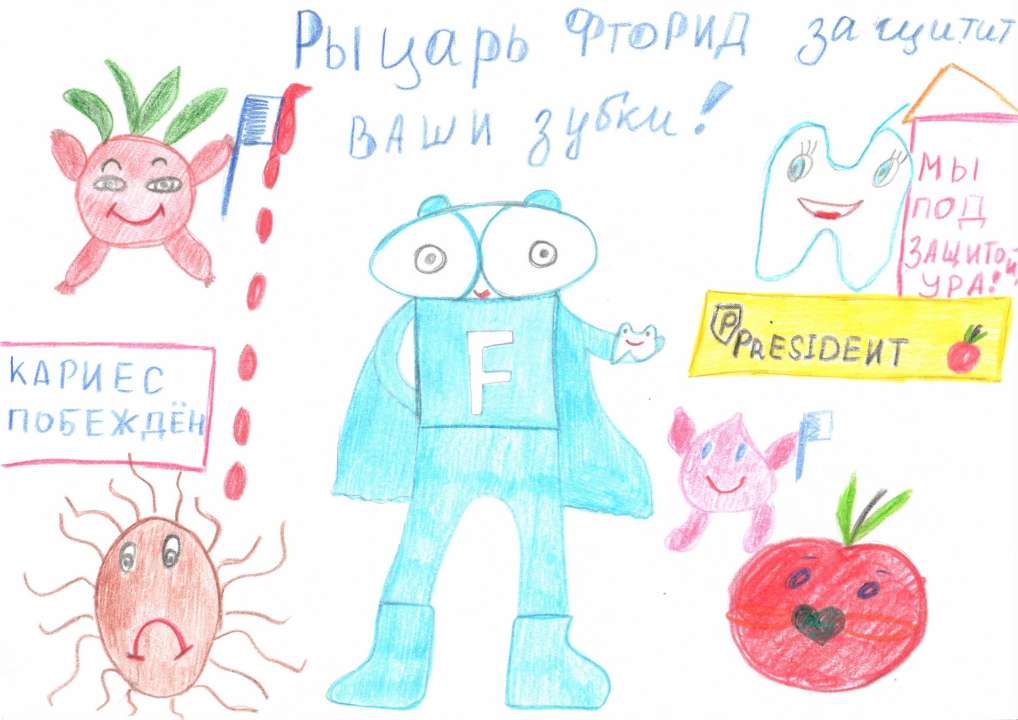 Рыцарь Фторид защитит
ваши зубки!
МЫ
ПОД
ЗАЩИТОЙ,
УРА!
P PRESIDENT
КАРИЕС
ПОБЕЖДЁН
F